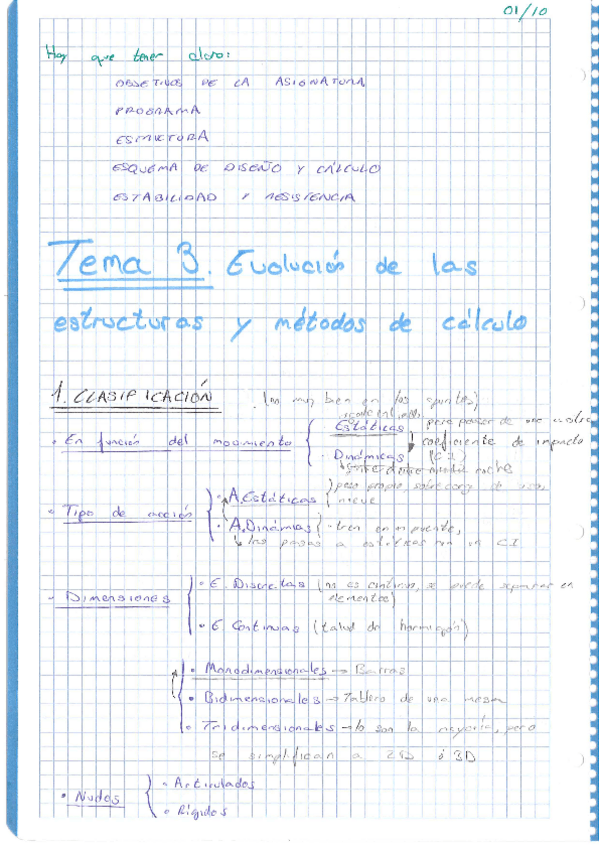 01/10
Hay que tener claro:
OBJETIVOS DE LA ASIGNATURA
PROGRAMA
ESTRUCTURA
ESQUEMA DE DISEÑO Y CÁLCULO
ESTABILIDAD Y RESISTENCIA
Tema 3. Evolución de las
estructuras y métodos de cálculo
1. CLASIFICACIÓN (no muy bien en los apuntes)
• En función del movimiento
Estáticas para pasar de una a otra
coeficiente de impacto
• Dinámicas (C.I.)
• Tipo de acción
• A. Estáticas peso propio, sobrecarga de uso,
nieve
• A. Dinámicas - tren en un puente,
las pasas a estáticas con un C.I.
- Dimensiones
• E. Discretas (no es continuo, se puede separar en
elementos)
• E. Continuas (talud de hormigón)
• Monodimensionales → Barras
• Bidimensionales → Tablero de una mesa
• Tridimensionales → lo son la mayoría, pero
se simplifican a 2D ó 3D
• Nudos
• Articulados
• Rígidos